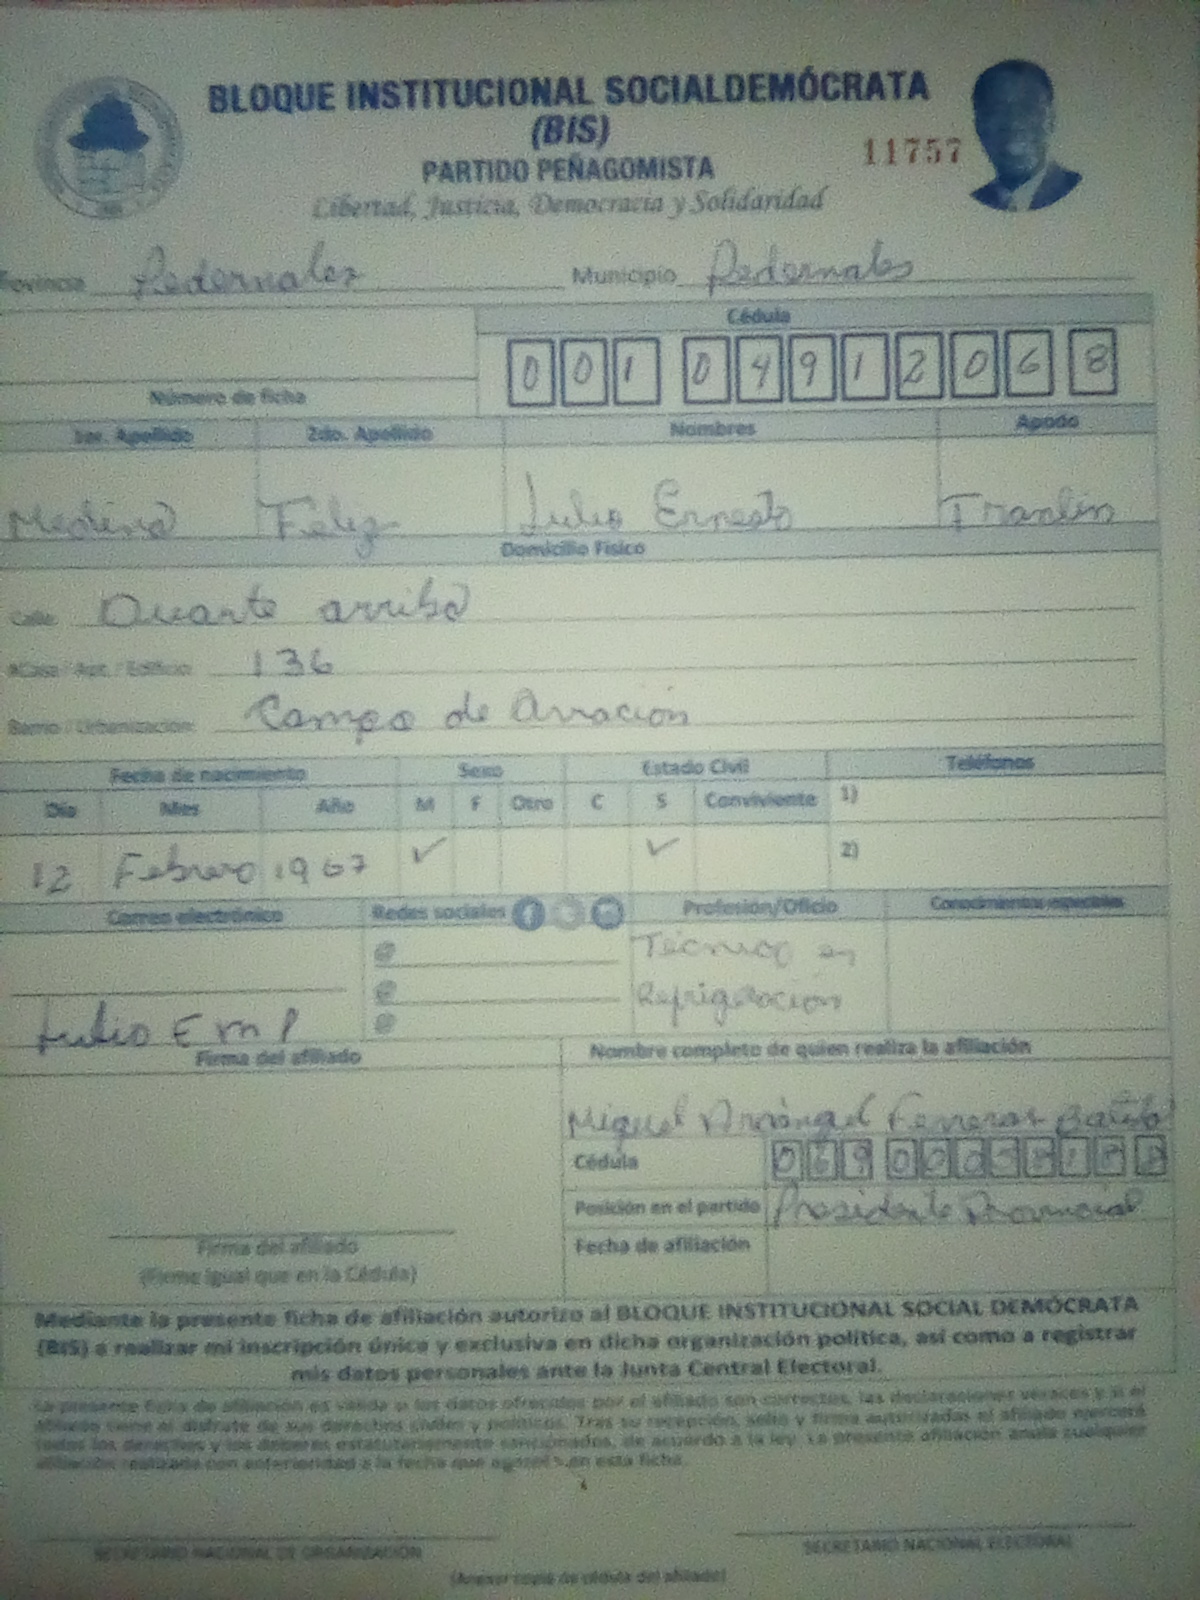 BLOQUE INSTITUCIONAL SOCIALDEMÓCRATA
(BIS)
11757
PARTIDO PEÑAGOMISTA
Libertad, Justicia, Democracia y Solidaridad
Provincia Pedernales Municipio Pedernales
Cédula
0 0 1 0 4 9 1 2 0 6 8
Número de ficha
1er. Apellido 2do. Apellido Nombres Apodo
Medina Feliz Julio Ernesto Franlin
Domicilio Físico
Calle Duarte arriba
#Casa / Apt. / Edificio 136
Barrio / Urbanización: Campo de Aviación
Fecha de nacimiento Sexo Estado Civil Teléfonos
Día Mes Año M F Otro C S Conviviente 1)
12 Febrero 1967 ✓ ✓ 2)
Correo electrónico Redes sociales Profesión/Oficio Conocimientos especiales
@ Técnico en
@ Refrigeracion
@
Julio E m P
Firma del afiliado Nombre completo de quien realiza la afiliación
Miguel Arcángel Ferreras Batista
Cédula 0 6 9 0 0 0
Posición en el partido Presidente Provincial
Firma del afiliado Fecha de afiliación
(Firme igual que en la Cédula)
Mediante la presente ficha de afiliación autorizo al BLOQUE INSTITUCIONAL SOCIAL DEMÓCRATA
(BIS) a realizar mi inscripción única y exclusiva en dicha organización política, así como a registrar
mis datos personales ante la Junta Central Electoral.
La presente ficha de afiliación es válida si los datos ofrecidos por el afiliado son correctos, las declaraciones veraces y si el
afiliado tiene el disfrute de sus derechos civiles y políticos. Tras su recepción, sello y firma autorizadas el afiliado ejercerá
todos los derechos y los deberes estatutariamente sancionados, de acuerdo a la ley. La presente afiliación anula cualquier
afiliación realizada con anterioridad a la fecha que en esta ficha.
SECRETARIO NACIONAL DE ORGANIZACIÓN SECRETARIO NACIONAL ELECTORAL
(Anexar copia de cédula del afiliado)